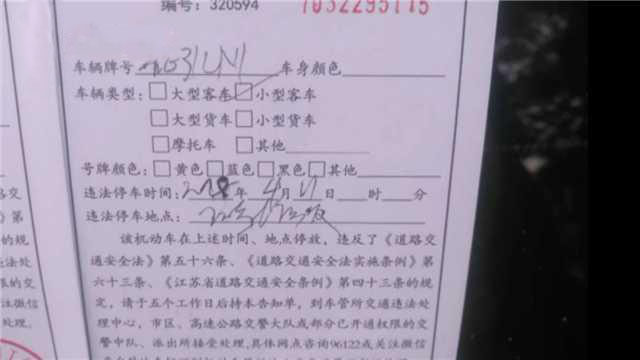 编号: 320594 7032295115
车辆牌号 车身颜色
车辆类型: □大型客车 ☑小型客车
□大型货车 □小型货车
□摩托车 □其他
号牌颜色: □黄色 □蓝色 □黑色 □其他
违法停车时间: 年 4月 日 时 分
违法停车地点:
该机动车在上述时间、地点停放, 违反了《道路交
通安全法》第五十六条、《道路交通安全法实施条例》第
六十三条、《江苏省道路交通安全条例》第四十三条的规
定, 请于五个工作日后持本告知单, 到车管所交通违法处
理中心, 市区、高速公路交警大队或部分已开通权限的交
警中队、派出所接受处理,具体网点咨询96122或关注微信